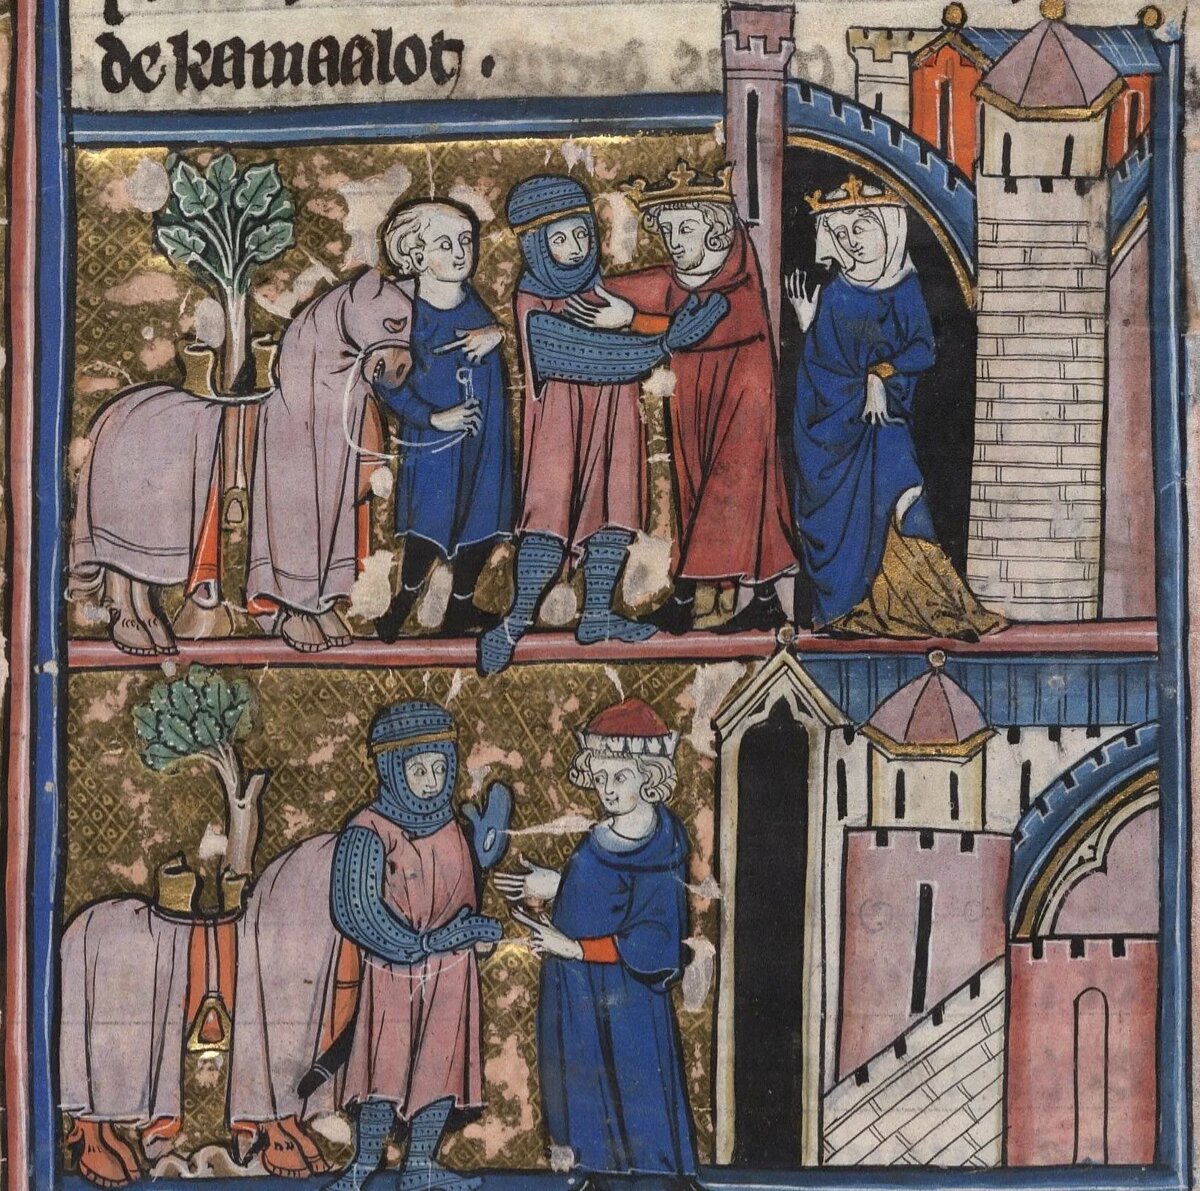 de kamaalot .